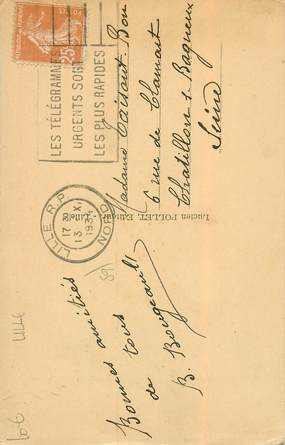 POSTES
25
LES TÉLÉGRAMMES
URGENTS SONT
LES PLUS RAPIDES
LILLE R.P.
17 30
13 X
193
NORD
Madame
6 rue de Clamart
Chatillon s. Bagneux
Seine
Lucien POLLET, Editeur, Lille
Bonnes amitiés
à tous
de
B. Bougeault
Lille